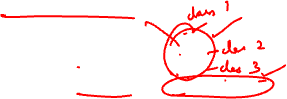 class 1
clas 2
clas 3